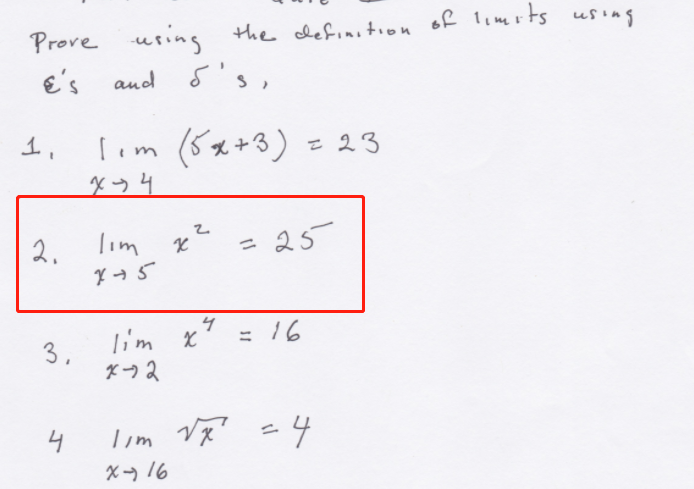 Prove using the definition of limits using
ε's and δ's,
1. lim (5x+3) = 23
x→4
2. lim x² = 25
x→5
3. lim x⁴ = 16
x→2
4 lim √x = 4
x→16